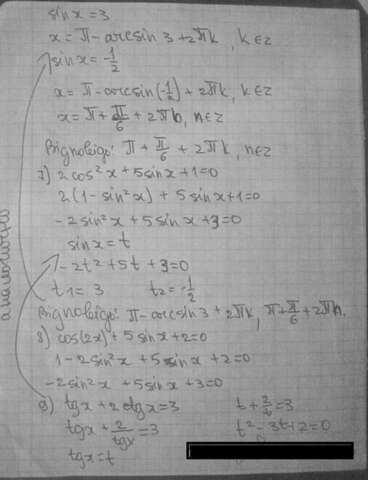 sin x = 3
x = π - arcsin 3 + 2πk, k ∈ z
sin x = -1/2
x = π - arcsin(-1/2) + 2πk, k ∈ z
x = π + π/6 + 2πn, n ∈ z
Відповідь: π + π/6 + 2πk, n ∈ z
7) 2cos²x + 5sinx + 1 = 0
2(1 - sin²x) + 5sinx + 1 = 0
-2sin²x + 5sinx + 3 = 0
sin x = t
-2t² + 5t + 3 = 0
t1 = 3 t2 = -1/2
Відповідь: π - arcsin 3 + 2πk, π + π/6 + 2πn.
8) cos(2x) + 5sinx + 2 = 0
1 - 2sin²x + 5sinx + 2 = 0
-2sin²x + 5sinx + 3 = 0
tgx + 2ctgx = 3
tgx + 2/tgx = 3
tgx = t
t + 2/t = 3
t² - 3t + 2 = 0
аналогічно